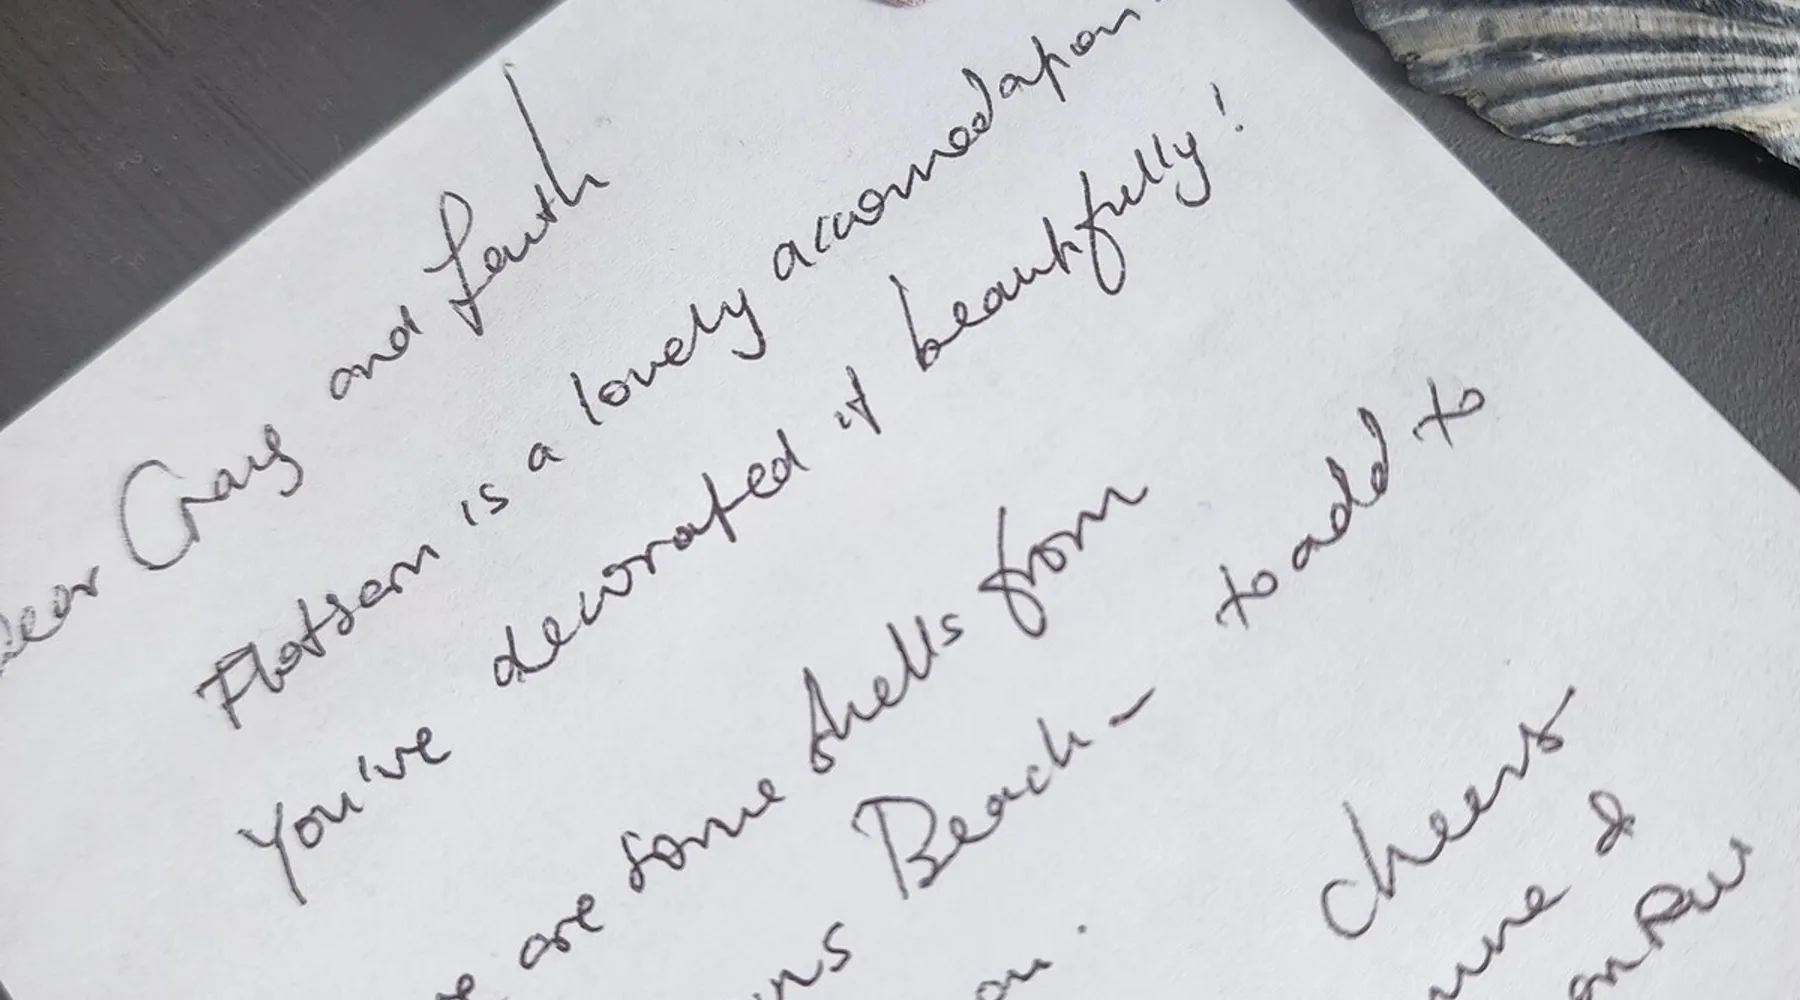 Dear Craig and
Flotsam is a lovely accomodation.
You've decorated it beautifully!
are some shells from
Beach - to add to
cheers
&